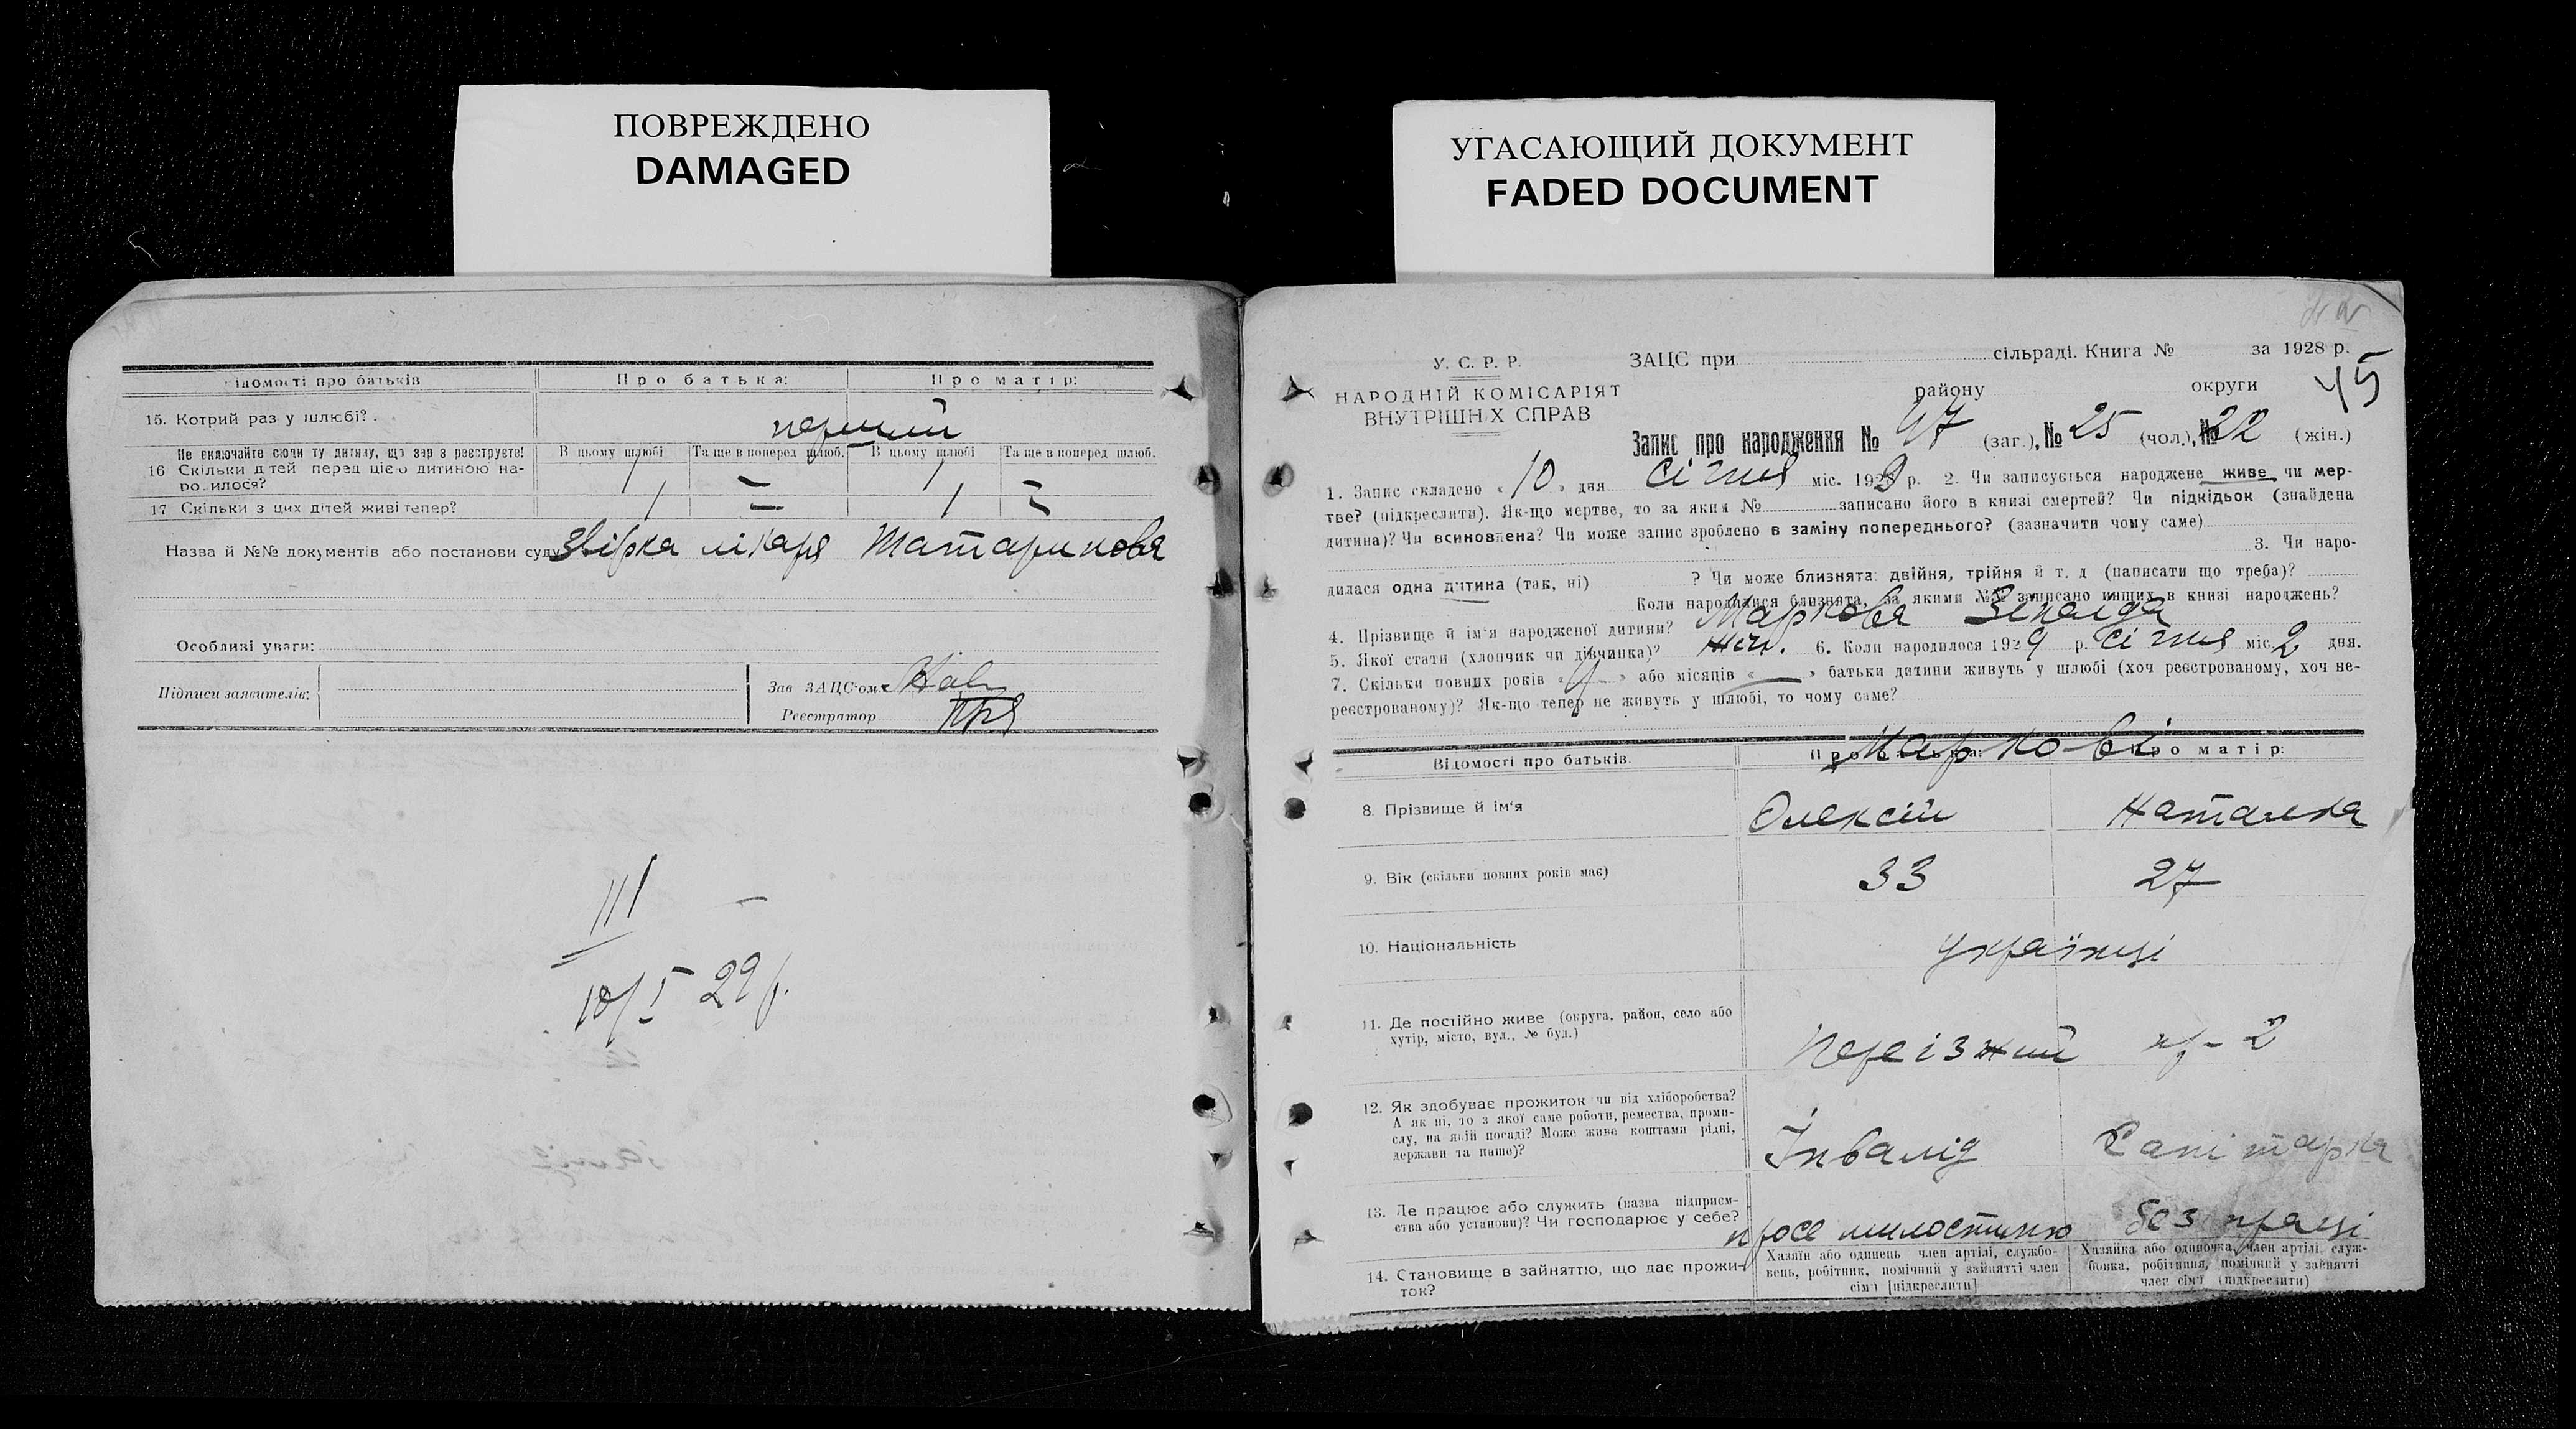 ПОВРЕЖДЕНО
DAMAGED
УГАСАЮЩИЙ ДОКУМЕНТ
FADED DOCUMENT
ідомості про батьків
Про батька:
Про матір:
15. Котрий раз у шлюбі?
перший
Не включайте сюди ту дитину, що зар з реєструєте!
16 Скільки дітей перед цією дитиною на-
родилося?
В цьому шлюбі
Та ще в поперед шлюб.
В цьому шлюбі
Та ще в поперед шлюб.
1 — 1 —
17 Скільки з цих дітей живі тепер?
1 — 1 —
Назва й №№ документів або постанови суду Звірка лікаря Татаринова
Особливі уваги:
Підписи заявителів:
Зав ЗАЦС'ом
Реєстратор
III
10/I 29 р.
У. С. Р. Р.
НАРОДНІЙ КОМІСАРІЯТ
ВНУТРІШНІХ СПРАВ
ЗАЦС при сільраді. Книга № за 1928 р.
району округи
45
Запис про народження № 47 (заг.), № 25 (чол.), № 22 (жін.)
1. Запис складено „10" дня січня міс. 1929 р. 2. Чи записується народжене живе чи мер-
тве? (підкреслити). Як-що мертве, то за яким № записано його в книзі смертей? Чи підкідьок (знайдена
дитина)? Чи всиновлена? Чи може запис зроблено в заміну попереднього? (зазначити чому саме)
3. Чи наро-
дилася одна дитина (так, ні) ? Чи може близнята: двійня, трійня й т. д (написати що треба)?
Коли народилися близнята, за якими №№ записано инших в книзі народжень?
4. Прізвище й ім'я народженої дитини? Маркова Зінаїда
5. Якої стати (хлопчик чи дівчинка)? жін. 6. Коли народилося 1929 р. січня міс 2 дня.
7. Скільки повних років „4" або місяців „—" батьки дитини живуть у шлюбі (хоч реєстрованому, хоч не-
реєстрованому)? Як-що тепер не живуть у шлюбі, то чому саме?
Відомості про батьків
Про батька:
Про матір:
Маркові
8. Прізвище й ім'я
Олексій
Наталка
9. Вік (скільки повних років має)
33
27
10. Національність
українці
11. Де постійно живе (округа, район, село або
хутір, місто, вул., № буд.)
Переізжий пр-2
12. Як здобуває прожиток чи від хліборобства?
А як ні, то з якої саме роботи, ремества, проми-
слу, на якій посаді? Може живе коштами рідні,
держави та инше)?
Інвалід
Санітарка
13. Де працює або служить (назва підприєм-
ства або установи)? Чи господарює у себе?
просе милостиню
без праці
14. Становище в зайняттю, що дає прожи-
ток?
Хазяїн або одинець член артілі, службо-
вець, робітник, помічний у зайнятті член
сім'ї [підкреслити]
Хазяйка або одиночка, член артілі, служ-
бовка, робітниця, помічний у зайнятті
член сім'ї (підкреслити)